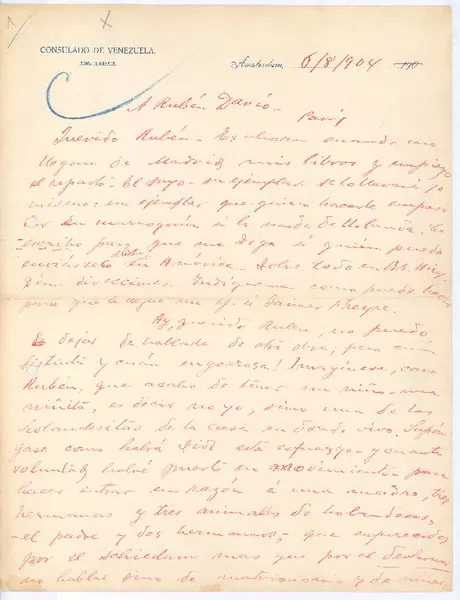 CONSULADO DE VENEZUELA.
AMSTERDAM.
Amsterdam, 6/8/904 190
A Rubén Darío –
París
Querido Rubén – Es ahora cuando me
llegan de Madrid mis libros y empiezo
el reparto – El suyo – su ejemplar se lo llevaré yo
mismo: un ejemplar que quiero hacerle empas-
tar en marroquín á la moda de Holanda. Le
escribo para que me diga si quién puedo
enviárselo en América – Sobre todo en Bs. Ays.
Deme direcciones. Indíqueme como puedo hacer
para que llegue un ej. á Jaimes Freyre.
Ay, querido Rubén, no puedo
dejar de hablarle de otra obra, pero cuán
distinta y cuán engorrosa! Imagínese, caro
Rubén, que acabo de tener un niño – una
niñita, es decir no yo, sino una de las
holandesitas de la casa en donde vivo. Supón-
gase como habrá sido este esfuerzo – y cuanta
voluntad habré puesto en movimiento para
hacer entrar en razón á una madre, tres
hermanas y tres animales de holandeses,
– el padre y dos hermanos – que enfurecidos
por el schiedam mas que por el deshonor
no hablan sino de matrimonio y de